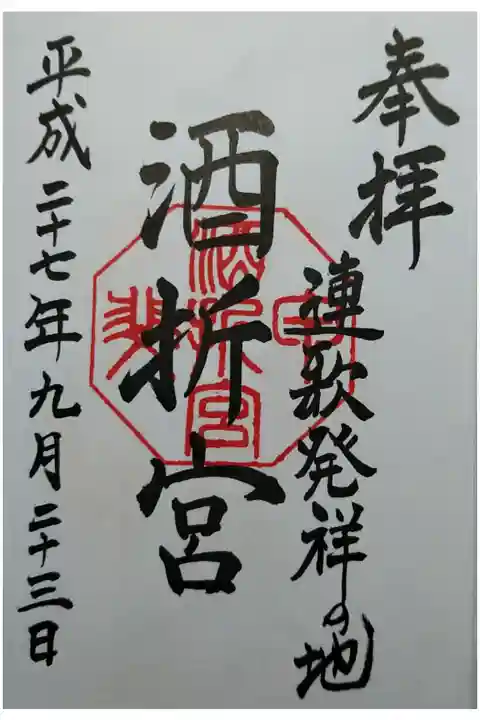 奉拝
連歌発祥の地
酒折宮
平成二十七年九月二十三日
酒折宮
甲斐